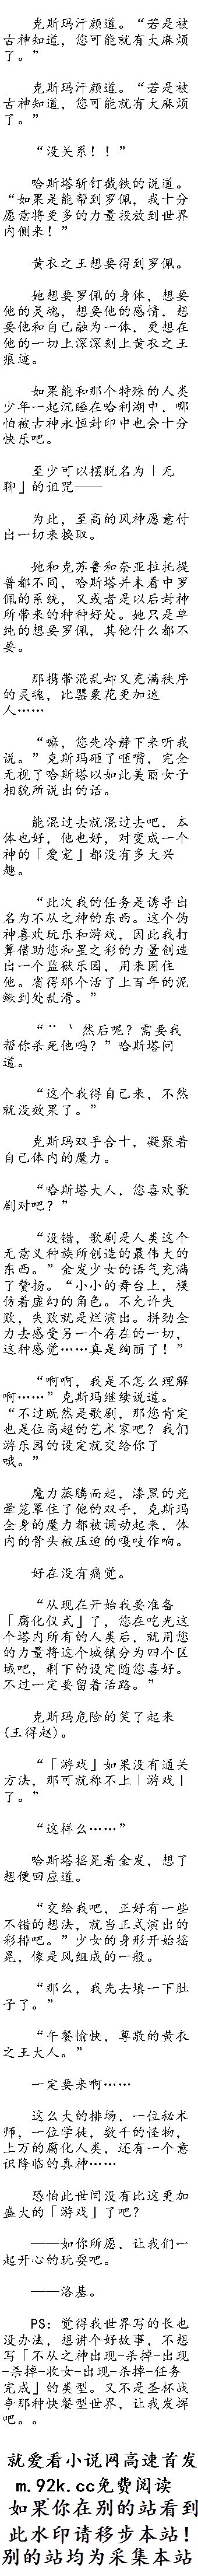 克斯玛汗颜道。“若是被
古神知道，您可能就有大麻烦
了。”
克斯玛汗颜道。“若是被
古神知道，您可能就有大麻烦
了。”
“没关系！！”
哈斯塔斩钉截铁的说道。
“如果是能帮到罗佩，我十分
愿意将更多的力量投放到世界
内侧来！”
黄衣之王想要得到罗佩。
她想要罗佩的身体，想要
他的灵魂，想要他的感情，想
要他和自己融为一体，更想在
他的一切上深深刻上黄衣之王
痕迹。
如果能和那个特殊的人类
少年一起沉睡在哈利湖中，哪
怕被古神永恒封印中也会十分
快乐吧。
至少可以摆脱名为「无
聊」的诅咒——
为此，至高的风神愿意付
出一切来换取。
她和克苏鲁和奈亚拉托提
普都不同，哈斯塔并未看中罗
佩的系统，又或者是以后封神
所带来的种种好处。她只是单
纯的想要罗佩，其他什么都不
要。
那携带混乱却又充满秩序
的灵魂，比罂粟花更加迷
人……
“嘛，您先冷静下来听我
说。”克斯玛砸了咂嘴，完全
无视了哈斯塔以如此美丽女子
相貌所说出的话。
能混过去就混过去吧，本
体也好，他也好，对变成一个
神的「爱宠」都没有多大兴
趣。
“此次我的任务是诱导出
名为不从之神的东西。这个伪
神喜欢玩乐和游戏，因此我打
算借助您和星之彩的力量创造
出一个监狱乐园，用来困住
他。省得那个活了上百年的泥
鳅到处乱滑。”
“¨ ｀然后呢？需要我
帮你杀死他吗？”哈斯塔问
道。
“这个我得自己来，不然
就没效果了。”
克斯玛双手合十，凝聚着
自己体内的魔力。
“哈斯塔大人，您喜欢歌
剧对吧？”
“没错，歌剧是人类这个
无意义种族所创造的最伟大的
东西。”金发少女的语气充满
了赞扬。“小小的舞台上，模
仿着虚幻的角色。不允许失
败，失败就是烂演出。拼劲全
力去感受另一个存在的一切，
这种感觉……真是绚丽了！”
“啊啊，我是不怎么理解
啊……”克斯玛继续说道。
“不过既然是歌剧，那您肯定
也是位高超的艺术家吧？我们
游乐园的设定就交给你了
哦。”
魔力蒸腾而起，漆黑的光
晕笼罩住了他的双手，克斯玛
全身的魔力都被调动起来，体
内的骨头被压迫的嘎吱作响。
好在没有痛觉。
“从现在开始我要准备
「腐化仪式」了，您在吃光这
个塔内所有的人类后，就用您
的力量将这个城镇分为四个区
域吧，剩下的设定随您喜好。
不过一定要留着活路。”
克斯玛危险的笑了起来
(王得赵)。
“「游戏」如果没有通关
方法，那可就称不上｜游戏｜
了。”
“这样么……”
哈斯塔摇晃着金发，想了
想便回应道。
“交给我吧，正好有一些
不错的想法，就当正式演出的
彩排吧。”少女的身形开始摇
晃，像是风组成的一般。
“那么，我先去填一下肚
子了。”
“午餐愉快，尊敬的黄衣
之王大人。”
一定要来啊……
这么大的排场，一位秘术
师，一位学徒，数千的怪物，
上万的腐化人类，还有一个意
识降临的真神……
恐怕此世间没有比这更加
盛大的「游戏」了吧？
——如你所愿，让我们一
起开心的玩耍吧。
——洛基。
PS：觉得我世界写的长也
没办法，想讲个好故事，不想
写「不从之神出现-杀掉-出现
-杀掉-收女-出现-杀掉-任务
完成」的类型。又不是圣杯战
争那种快餐型世界，让我发挥
吧。。
就爱看小说网高速首发
m.92k.cc免费阅读
如果你在别的站看到
此水印请移步本站！
别的站均为采集本站